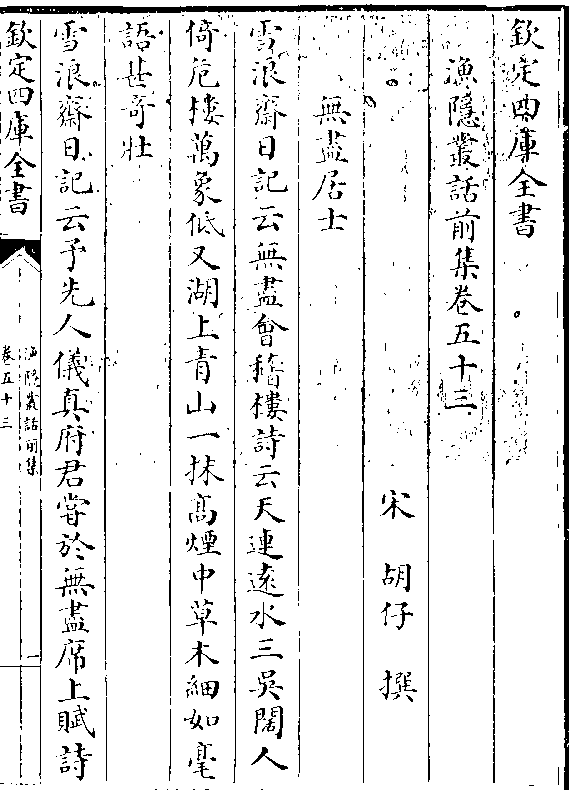 欽定四庫全書
漁隱叢話前集卷五十三
宋 胡仔 撰
無盡居士
雪浪齋日記云無盡會稽樓詩云天連遠水三吳闊人
倚危樓萬象低又湖上青山一抹高煙中草木細如毫
語甚奇壯
雪浪齋日記云予先人儀真府君嘗於無盡席上賦詩
欽定四庫全書
漁隱叢話前集
卷五十三
一